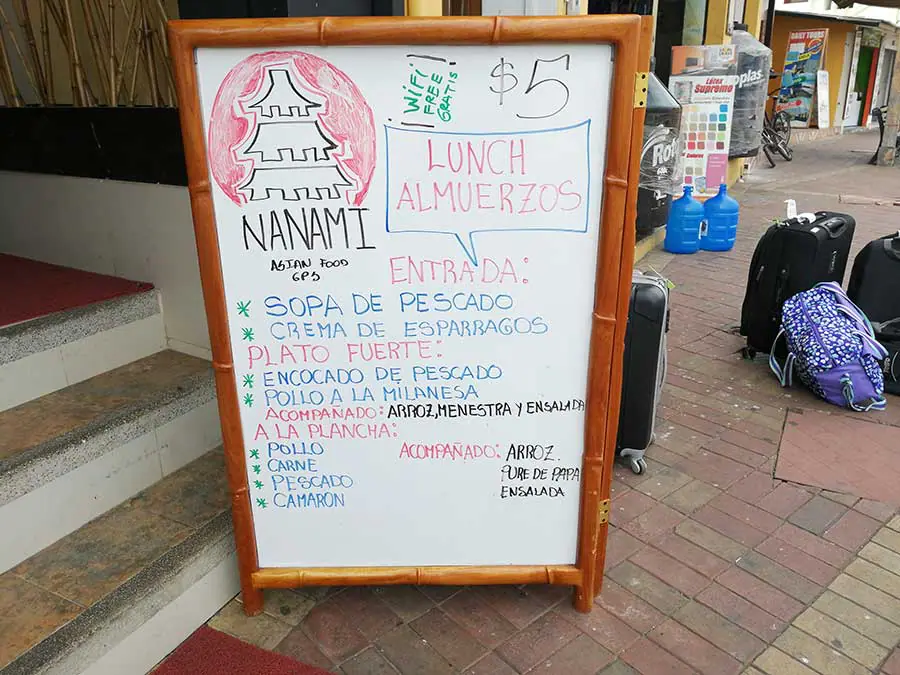 WiFi
FREE
GRATIS
$5
LUNCH
ALMUERZOS
NANAMI
ASIAN FOOD
GPS
ENTRADA:
* SOPA DE PESCADO
* CREMA DE ESPARRAGOS
PLATO FUERTE:
* ENCOCADO DE PESCADO
* POLLO A LA MILANESA
ACOMPAÑADO: ARROZ, MENESTRA Y ENSALADA
A LA PLANCHA:
* POLLO
* CARNE
* PESCADO
* CAMARON
ACOMPAÑADO: ARROZ.
PURE DE PAPA
ENSALADA
Látex
Supremo
Colores
DAILY TOURS